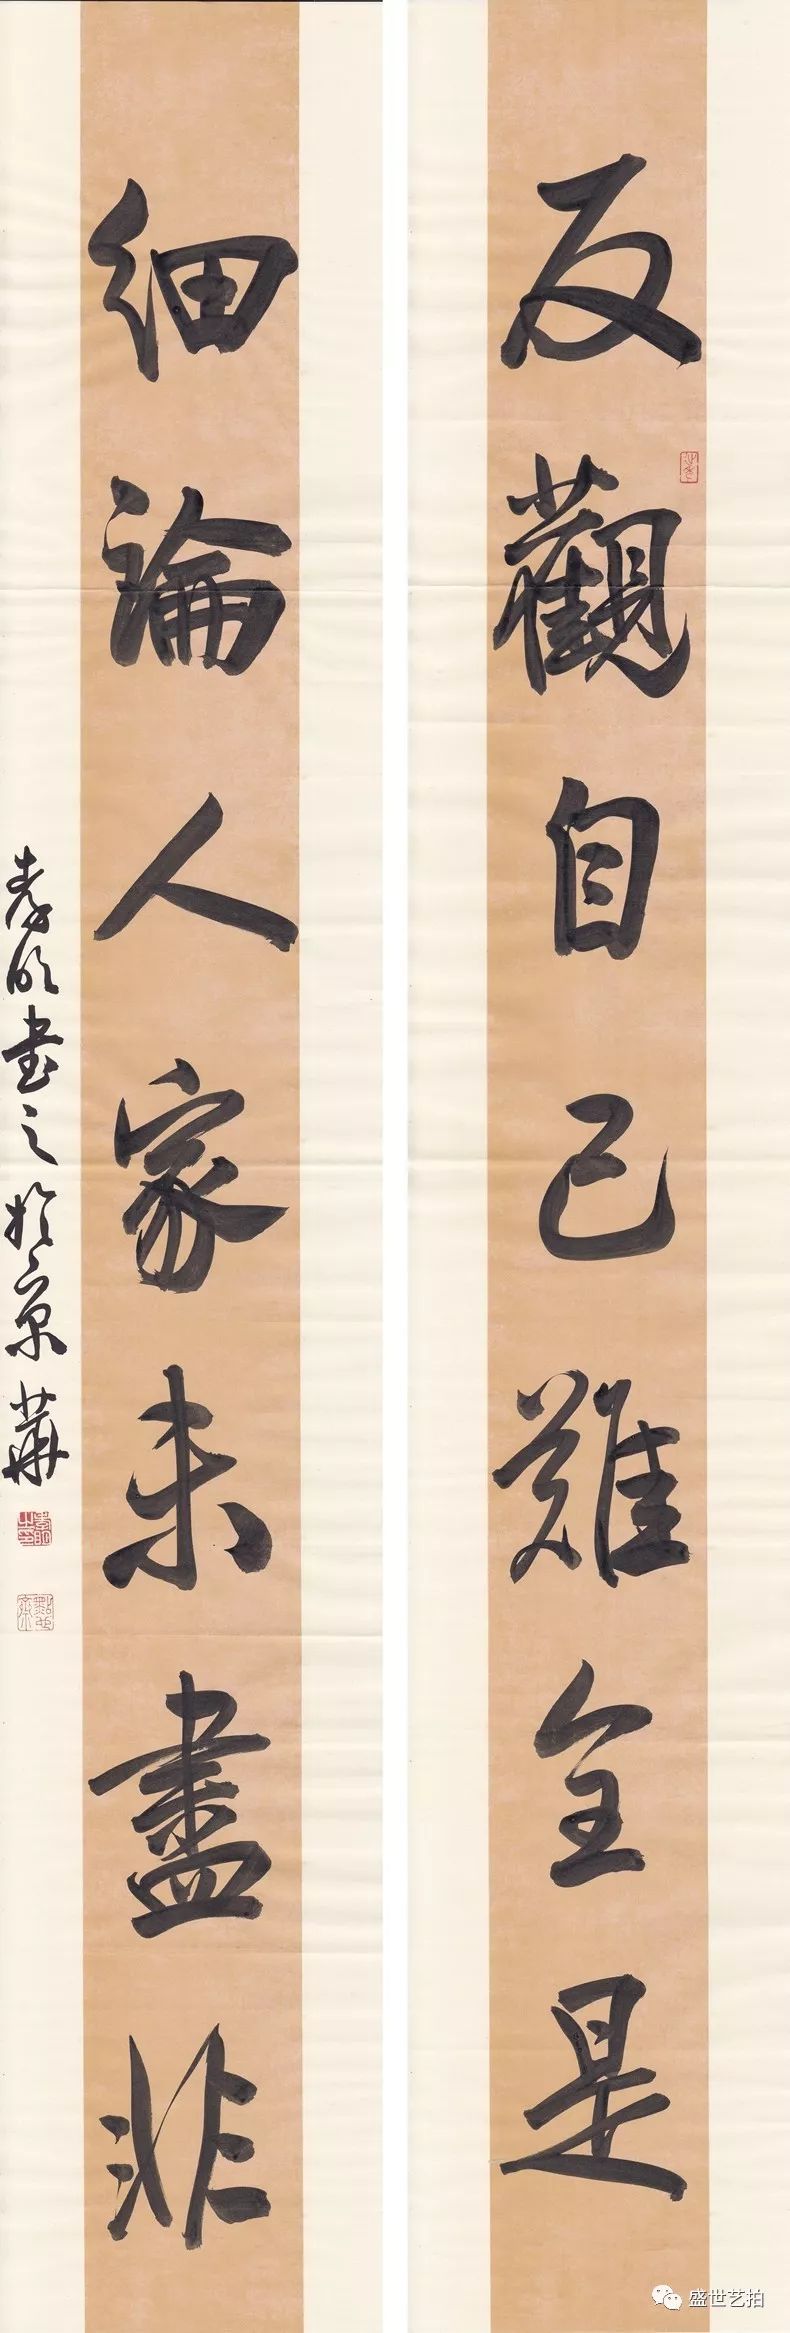 反觀自己難全是
細論人家未盡非
孝明書之於京華
盛世艺拍